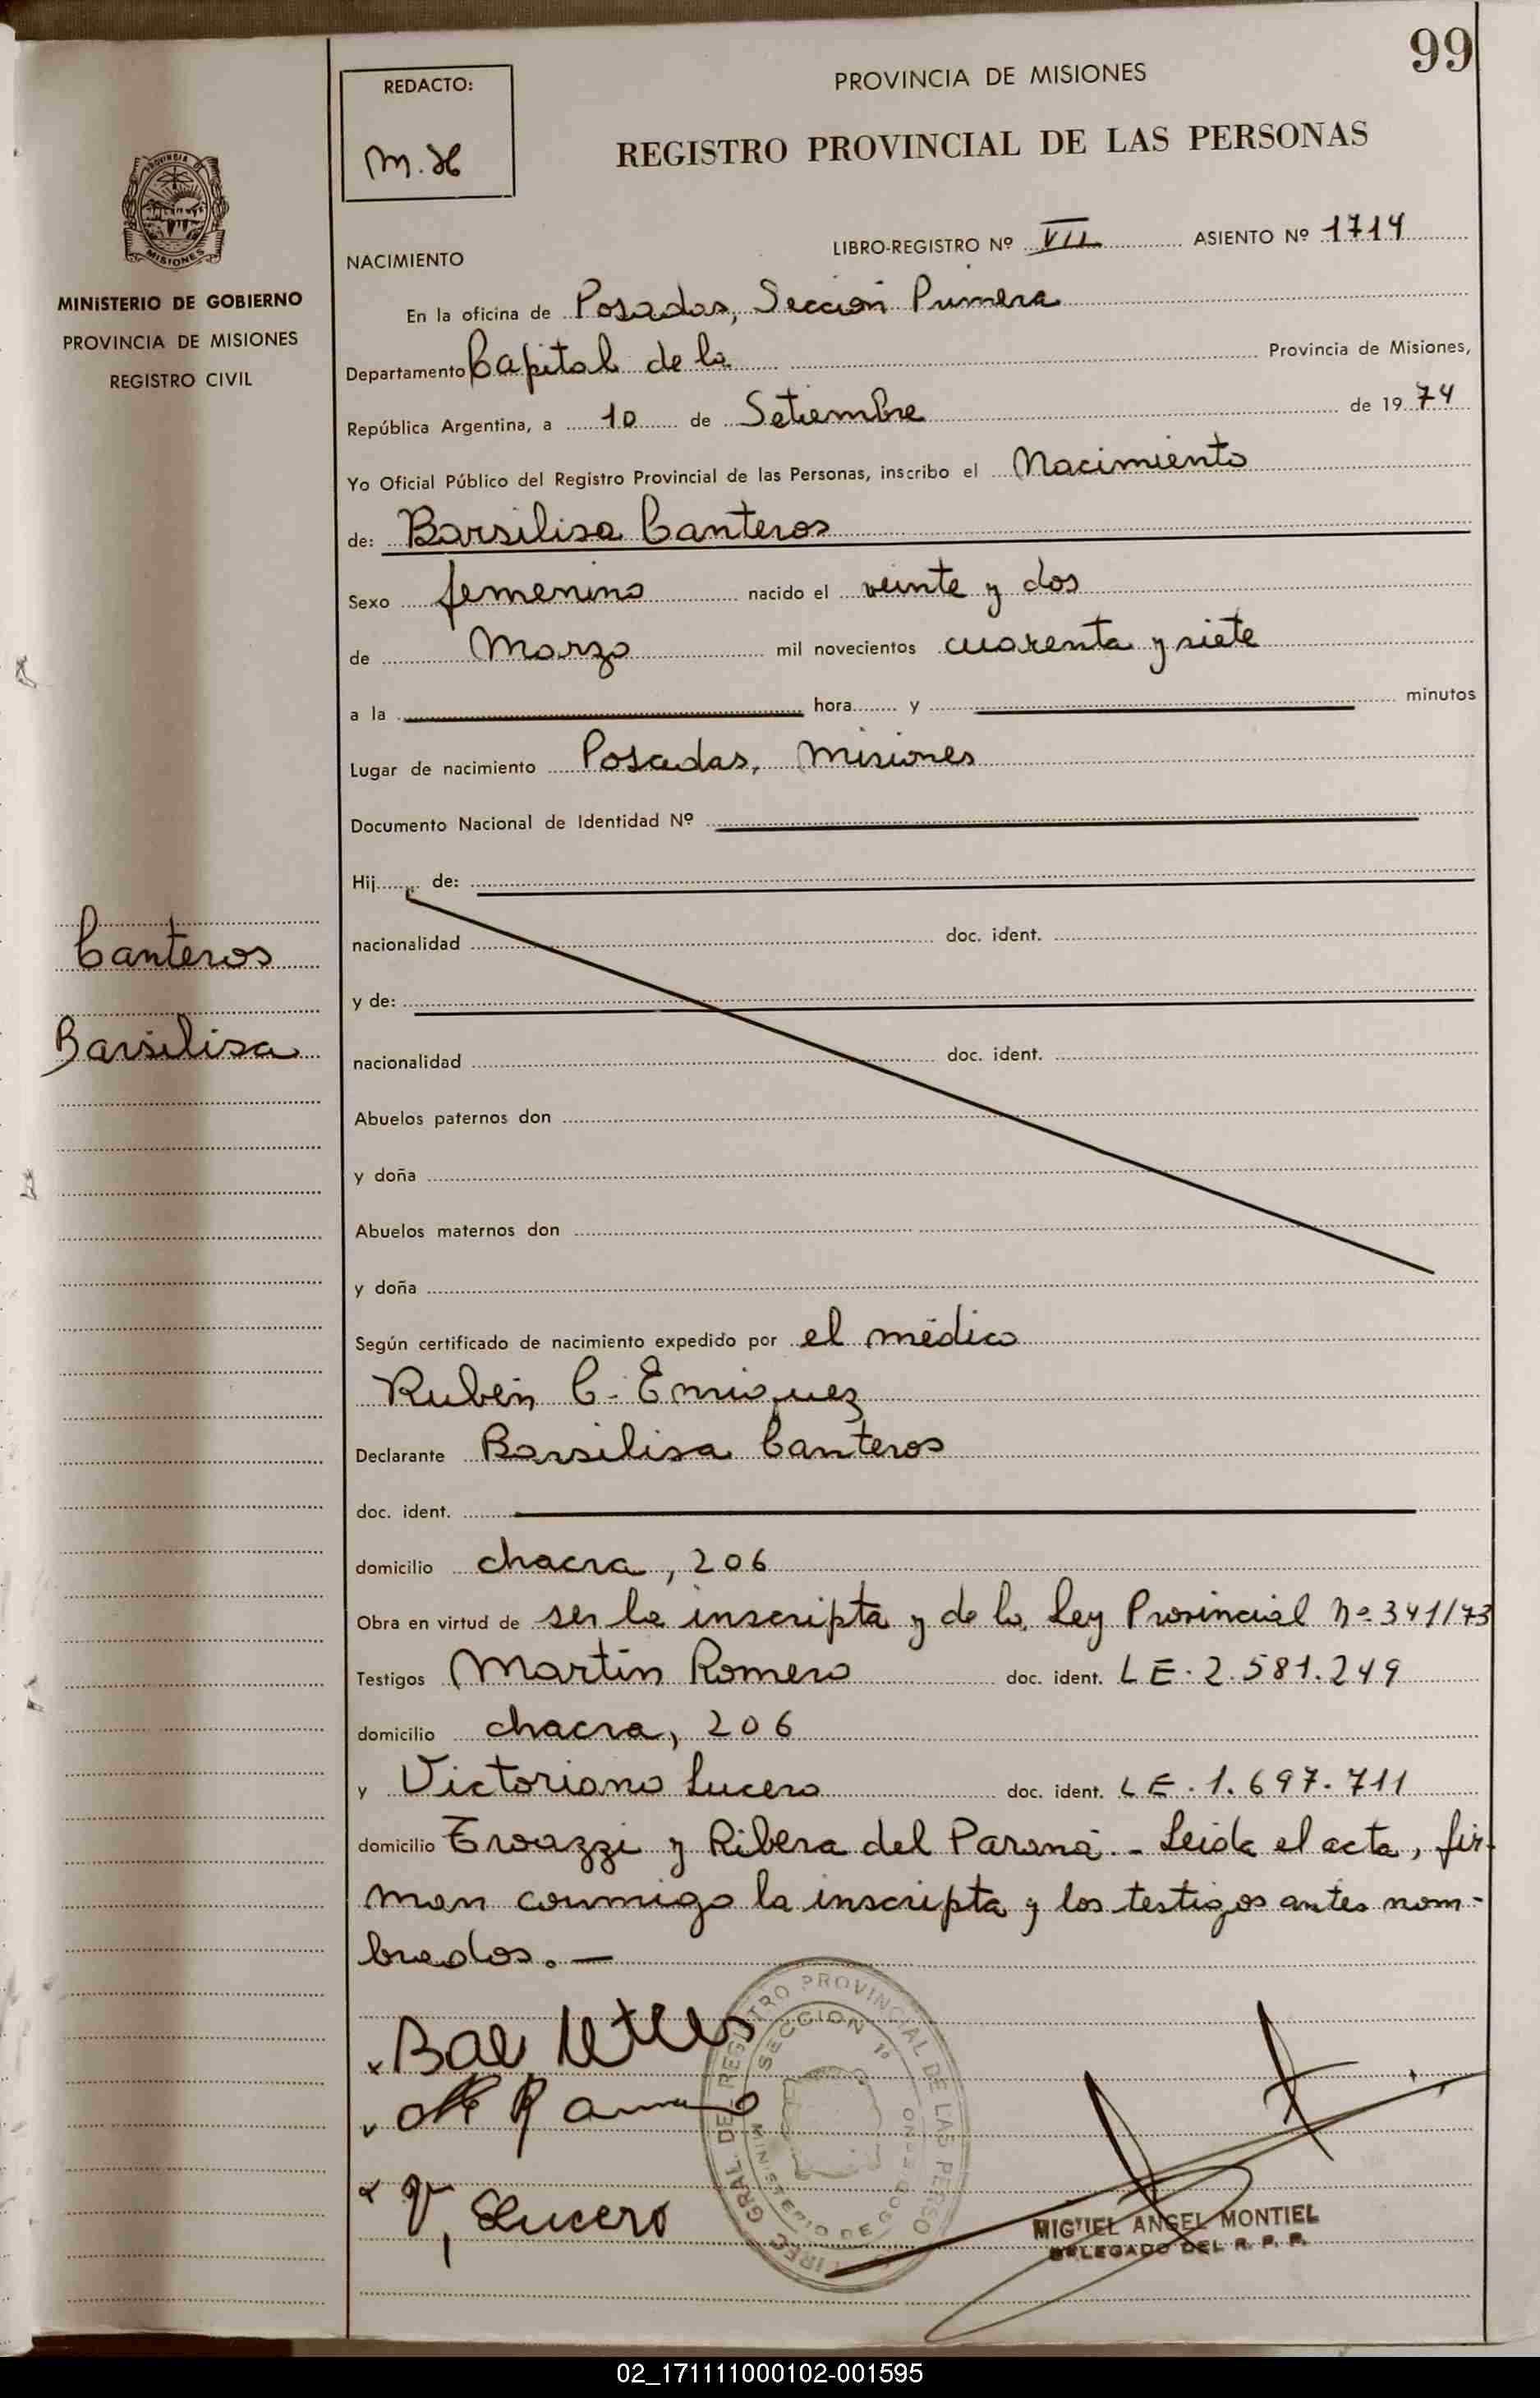 99
REDACTO:
M.H
PROVINCIA DE MISIONES
REGISTRO PROVINCIAL DE LAS PERSONAS
PROVINCIA DE
MISIONES
MINISTERIO DE GOBIERNO
PROVINCIA DE MISIONES
REGISTRO CIVIL
NACIMIENTO
LIBRO-REGISTRO Nº VII ASIENTO Nº 1714
En la oficina de Posadas, Sección Primera
Departamento Capital de la Provincia de Misiones,
República Argentina, a 10 de Setiembre de 1974
Yo Oficial Público del Registro Provincial de las Personas, inscribo el Nacimiento
de: Barsilisa Canteros
Sexo femenino nacido el veinte y dos
de Marzo mil novecientos cuarenta y siete
a la hora y minutos
Lugar de nacimiento Posadas, Misiones
Documento Nacional de Identidad Nº
Hij de:
Canteros
Barsilisa
nacionalidad doc. ident.
y de:
nacionalidad doc. ident.
Abuelos paternos don
y doña
Abuelos maternos don
y doña
Según certificado de nacimiento expedido por el médico
Rubén C. Enriquez
Declarante Barsilisa Canteros
doc. ident.
domicilio chacra, 206
Obra en virtud de ser la inscripta y de la Ley Provincial Nº 341/73
Testigos Martín Romero doc. ident. LE. 2.581.249
domicilio chacra, 206
y Victoriano Lucero doc. ident. LE. 1.697.711
domicilio y Ribera del Paraná.- Leida el acta, fir-
man conmigo la inscripta y los testigos antes nom-
brados.—
V, Lucero
DIREC. GRAL. DE REGISTRO PROVINCIAL DE LAS PERSO
SECCION 1º
MINISTERIO DE GOBIERNO
MIGUEL ANGEL MONTIEL
DELEGADO DEL R. P. P.
02_171111000102-001595